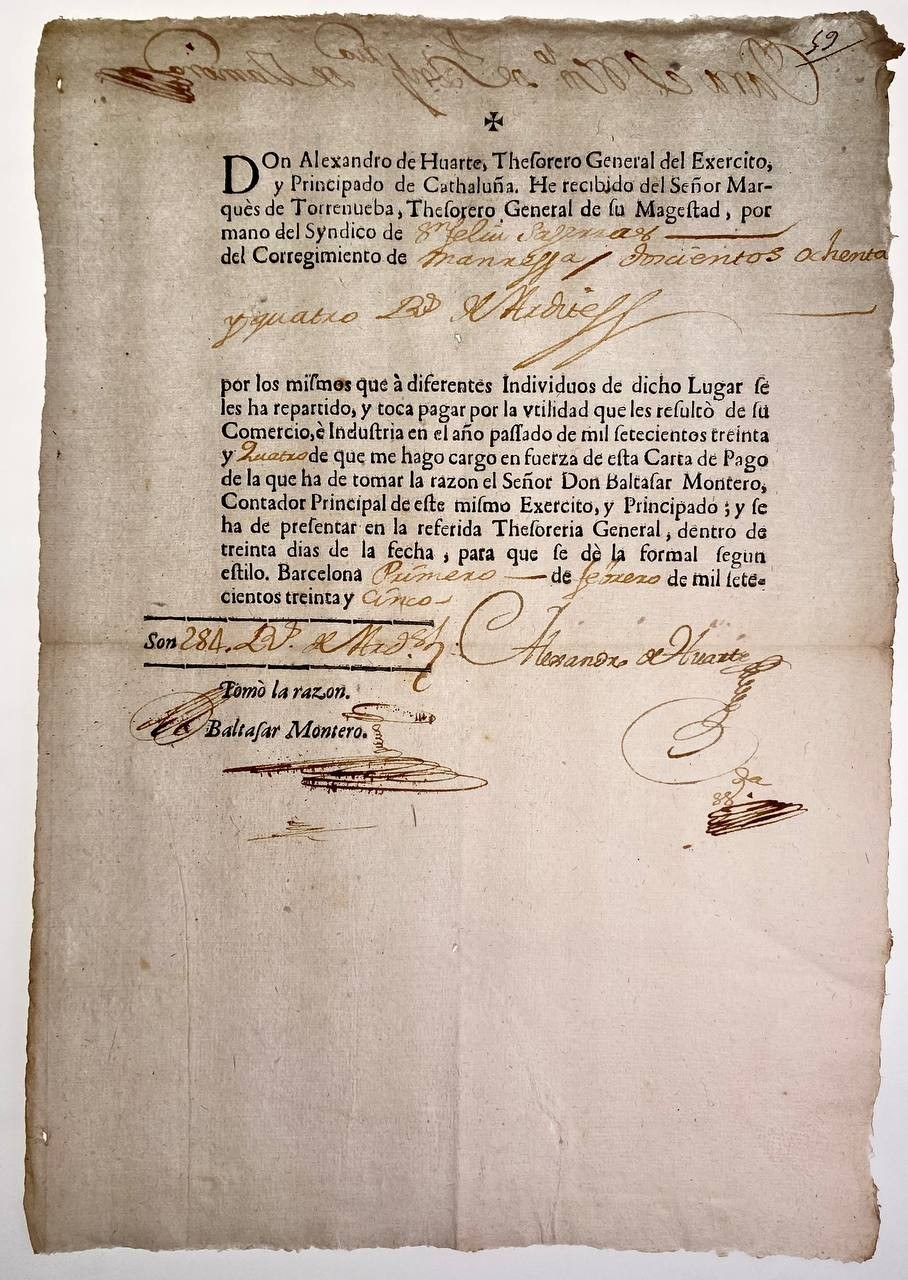 59
✠
DOn Alexandro de Huarte, Thesorero General del Exercito,
y Principado de Cathaluña. He recibido del Señor Mar-
quès de Torrenueba, Thesorero General de su Magestad, por
mano del Syndico de Sn feliu Saserras
del Corregimiento de Manressa / Doscientos ochenta
y quatro Rs. de Ardites
por los miſmos que à diferentes Individuos de dicho Lugar ſe
les ha repartido, y toca pagar por la vtilidad que les reſultò de ſu
Comercio, è Induſtria en el año paſſado de mil ſetecientos treinta
y Quatro de que me hago cargo en fuerza de eſta Carta de Pago
de la que ha de tomar la razon el Señor Don Baltaſar Montero,
Contador Principal de eſte miſmo Exercito, y Principado ; y ſe
ha de preſentar en la referida Theſoreria General, dentro de
treinta dias de la fecha, para que ſe dè la formal ſegun
eſtilo. Barcelona Primero de febrero de mil ſete-
cientos treinta y Cinco
Son 284. Rs. de Ards. Alexandro de Huarte
Tomò la razon.
Baltaſar Montero.